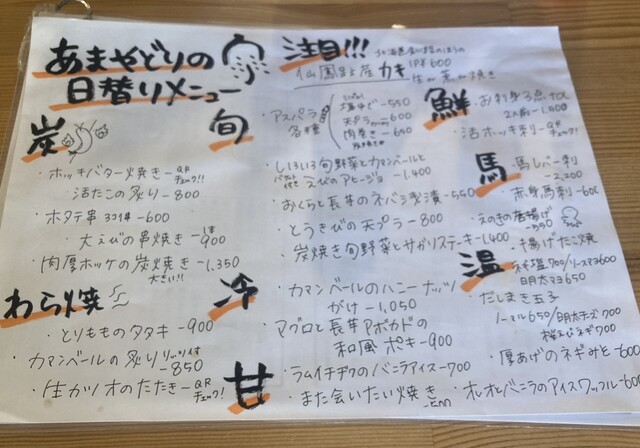 あまやどりの
日替りメニュー
炭
・ホッキバター焼き-QRチェック!!
・活たこの炙り-800
・ホタテ串 -600
・大えびの串焼き-1本900
・肉厚ホッケの炭焼き-1,350
大きい!!
わら焼
・とりもものタタキ-900
・カマンベールの炙り-850
・生カツオのたたき-QRチェック!
旬
注目!!!
仙鳳趾産カキ 1P¥600
・アスパラ各種
塩ゆで-550
天プラ-600
肉巻き-650
・いろいろ旬野菜とカマンベールと
えびのアヒージョ-1,400
バゲット付き
・おくらと長芋のネバシ漬-550
・とうきびの天プラ-800
・炭焼き旬野菜とサガリステーキ-1,400
冷
・カマンベールのハニーナッツ
がけ-1,050
・マグロと長芋アボカドの
和風ポキ-900
甘
・ラムイチヂクのバニラアイス-700
・また会いたい焼き-500
・オレオとバニラのアイスワッフル-600
鮮
・お刺身3点
2人前-1,400
・活ホッキ刺-QRチェック!
馬
・馬レバー刺
-2,200
・赤身馬刺-600
温
・えのきの唐揚げ
-550
・手揚げたこ焼
ネギ塩700/ソースマヨ650
明太マヨ650
・だしまき玉子
ノーマル650/明太チーズ700
桜えびネギ700
・厚あげのネギみそ-600